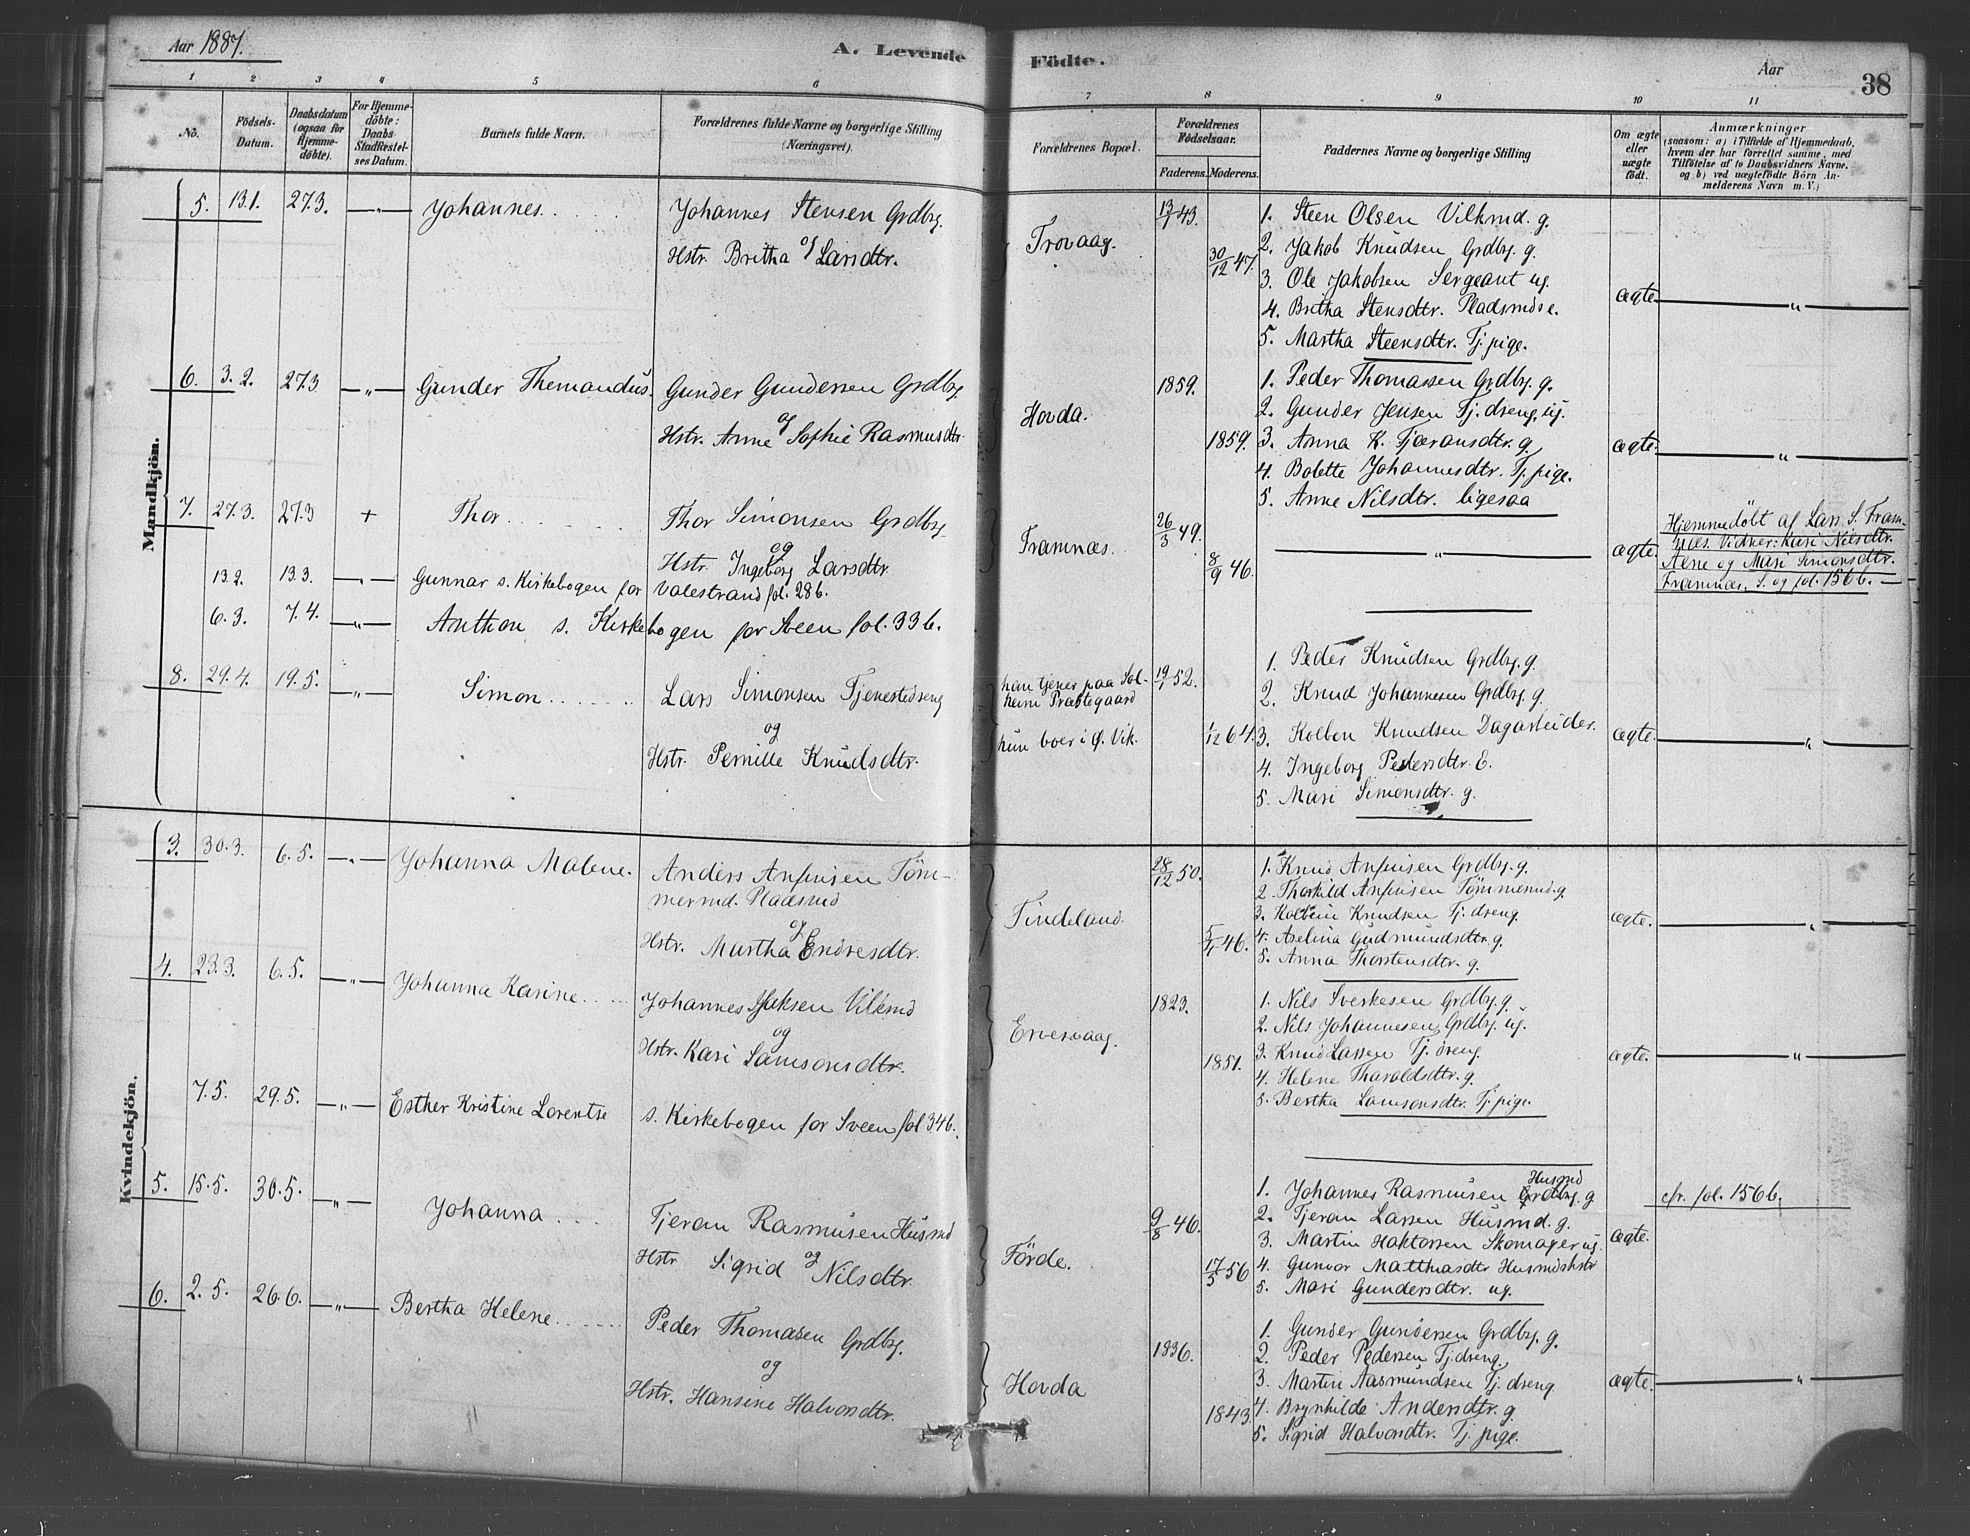 Aar 1887.
A. Levende Födte.
Aar
38
1 2 3 4 5 6 7 8 9 10 11
No.
Födsels-
Datum.
Daabsdatum
(ogsaa for
Hjemme-
döbte).
For Hjemme-
döbte:
Daabs-
Stadfæstel-
ses Datum.
Barnets fulde Navn.
Forældrenes fulde Navne og borgerlige Stilling
(Næringsvei).
Forældrenes Bopæl.
Forældrenes
Födselsaar.
Faderens. Moderens.
Faddernes Navne og borgerlige Stilling
Om ægte
eller
uægte
födt.
Anmærkninger
(saasom: a) i Tilfælde af Hjemmedaab,
hvem der har forrettet samme, med
Tilföielse af to Daabsvidners Navne,
og b) ved uægtefödte Börn An-
melderens Navn m. V.)
Mandkjön.
5. 13.1. 27.3. — „ — Johannes.
Johannes Stensen Grdbg.
og
Hstr. Britha Larsdtr.
Trovaag.
13/1 43.
30/12 47.
1. Steen Olsen Vilkmd. g.
2. Jakob Knudsen Grdbg. g.
3. Ole Jakobsen Sergeant ug.
4. Britha Stensdtr. Pladsmds e.
5. Martha Steensdtr. Tj. pige.
ægte. — „ —
6. 3.2. 27.3 — „ — Gunder Themandus.
Gunder Gundersen Grdbg.
og
Hstr. Anne Sophie Rasmusdtr.
Hovda.
1859.
1859.
1. Peder Thomassen Grdbg. g.
2. Gunder Jensen Tj. dreng, ug.
3. Anna K. Tjeransdtr. g,
4. Bolette Johannesdtr. Tj. pige.
5. Anne Nilsdtr. ligesaa
ægte. — „ —
7. 27.3. 27.3 + Thor
Thor Simonsen Grdbg.
og
Hstr. Ingeborg Larsdtr
Framnæs.
26/3 49.
8/9 46.
— „ —
ægte.
Hjemmedöbt af Lars S. Fram-
næs. Vidner: Kari Nilsdtr.
og Mari Simonsdtr.
Framnæs. S. og fol. 156 b. —
13.2. 13.3. — „ — Gunnar s. Kirkebogen for Valestrand fol. 28 b.
6.3. 7.4. — „ — Anthon s. Kirkebogen for Sveen fol. 33 b.
8. 29.4. 19.5. — „ — Simon
Lars Simonsen Tjenestedreng
og
Hstr. Pernille Knudsdtr.
han tjener paa Sol-
heim Præstegaard
hun boer i Ö. Vik.
19/1 52.
1/12 64.
1. Peder Knudsen Grdbg. g.
2. Knud Johannesen Grdbg. g.
3. Kolben Knudsen Dagarbeider.
4. Ingeborg Pedersdtr. E.
5. Mari Simonsdtr. g.
ægte. — „ —
Kvindekjön.
3. 30.3. 6.5. — „ — Johanna Malene.
Anders Anfinsen Töm-
mermd. Pladsmd
og
Hstr. Martha Endresdtr.
Tindeland.
28/12 50.
5/1 46.
1. Knud Anfinsen Grdbg. g.
2. Thorkild Anfinsen Tömmermd. g.
3. Kolbein Knudsen Tj. dreng.
4. Aselina Gudmundsdtr. g.
5. Anna Thorstensdtr. g.
ægte. — „ —
4. 23.3. 6.5. — „ — Johanna Karine
Johannes Isaksen Vilkmd
og
Hstr. Kari Samsonsdtr.
Ervesvaag.
1823.
1851.
1. Nils Sverkesen Grdbg. g.
2. Nils Johannesen Grdbg. ug.
3. Knud Larsen Tj. dreng.
4. Helene Tharaldsdtr. g.
5. Bertha Samsonsdtr. Tj. pige.
ægte. — „ —
7.5. 29.5. — „ — Esther Kristine Lorentse s. Kirkebogen for Sveen fol 34 b.
5. 15.5. 30.5. — „ — Johanna
Tjeran Rasmusen Husmd
og
Hstr Sigrid Nilsdtr.
Förde.
9/8 46.
17/5 56
Husmd
1. Johannes Rasmusen Grdbg. g
2. Tjeran Larsen Husmd. g.
3. Martin Haktorsen Skomager ug.
4. Gunvor Matthiasdtr Husmdshstr
5. Mari Gundersdtr. ug.
ægte.
cfr. fol. 156 b.
6. 2.5. 26.6. — „ — Bertha Helene
Peder Thomasen Grdbg.
og
Hstr. Hansine Halvorsdtr.
Hovda
1836.
1843.
1. Gunder Gundersen Grdbg. g.
2. Peder Pedersen Tj. dreng,
3. Martin Aasmundsen Tj. dreng
4. Brynhilde Andersdtr. g
5. Sigrid Halvorsdtr. Tj. pige.
ægte. — „ —